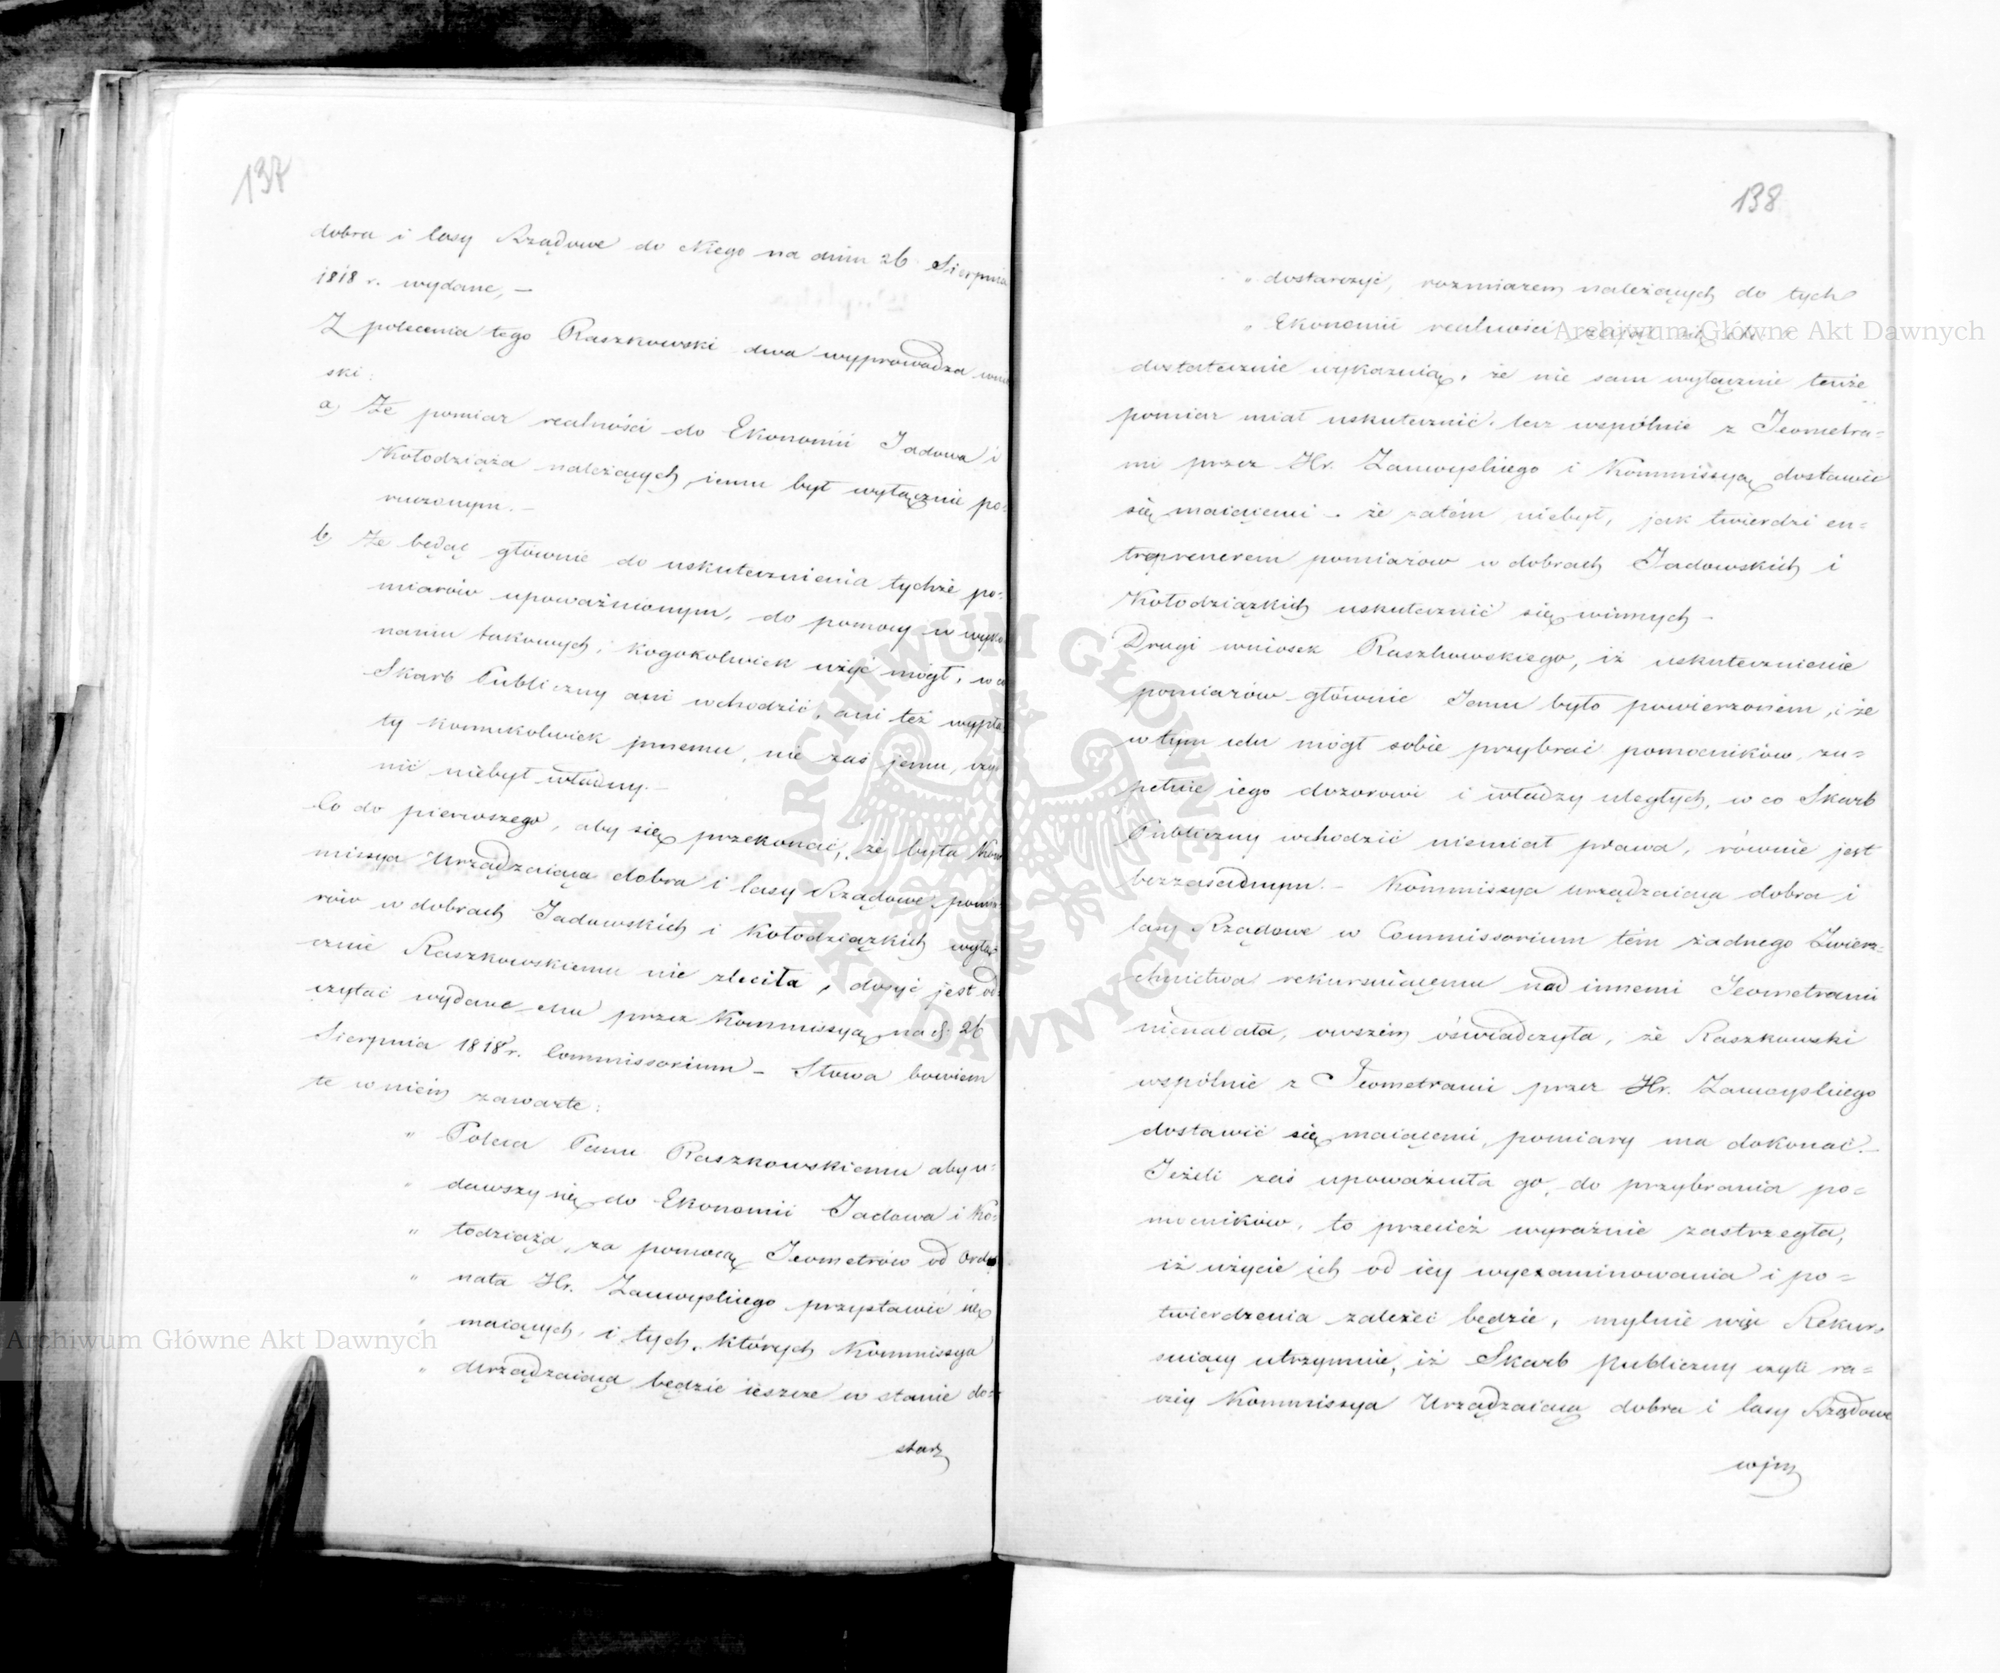 137
dobra i lasy Rządowe do Niego na dniu 26 Sierpnia
1818 r. wydane, —
Z polecenia tego Raszkowski dwa wyprowadza wnio
ski:
a, Że pomiar realności do Ekonomii Jadowa i
Kołodziąża należących, iemu był wyłącznie po=
ruczonym. —
b, Że będąc głównie do uskutecznienia tychże po=
miarów upoważnionym, do pomocy w wyko
naniu takowych, kogokolwiek użyć mógł, w co
Skarb Publiczny ani wchodzić, ani też wypła
ty komukolwiek innemu, nie zaś jemu, czy
nić niebył władny. —
Co do pierwszego, aby się przekonać, że była Kom
missya Urządzaiąca dobra i lasy Rządowe, pomia
rów w dobrach Jadowskich i Kołodziązkich wyłą
cznie Raszkowskiemu nie zleciła, dosyć jest od=
czytać wydane mu przez Kommissyą na d: 26
Sierpnia 1818 r. Commissorium — Słowa bowiem
te w niém zawarte:
" Poleca Panu Raszkowskiemu aby u=
" dawszy się do Ekonomii Jadowa i Ko=
" łodziąża, za pomocą Jeometrów od Ordy
" nata Hr. Zamoyskiego przystawić się
" maiących, i tych, których Kommissya
" Urządzaiąca będzie ieszcze w stanie do=
starz
138
" dostarczyć, rozmiarem należących do tych
" Ekonomii realności zaiął się etc "
dostatecznie wykazuią, że nie sam wyłącznie tenże
pomiar miał uskutecznić, lecz wspólnie z Jeometra=
mi przez Hr. Zamoyskiego i Kommissyą dostawić
się maiącemi — że zatém niebył, jak twierdzi en=
treprenerem pomiarów w dobrach Jadowskich i
Kołodziązkich uskutecznić się winnych —
Drugi wniosek Raszkowskiego, iż uskutecznienie
pomiarów głównie Jemu było powierzoném, i że
w tym celu mógł sobie przybrać pomocników, zu=
pełnie iego dozorowi i władzy uległych, w co Skarb
Publiczny wchodzić niemiał prawa, równie jest
bezzasadnym. — Kommissya urządzaiąca dobra i
lasy Rządowe w Commissorium tém żadnego Zwierz=
chnictwa rekursuiącemu nad innemi Jeometrami
nienadała, owszém oświadczyła, że Raszkowski
wspólnie z Jeometrami przez Hr. Zamoyskiego
dostawić się maiącemi, pomiary ma dokonać. —
Jeżeli zaś upoważniła go, do przybrania po=
mocników, to przecież wyraźnie zastrzegła,
iż użycie ich od iey wyexaminowania i po=
twierdzenia zależeć będzie, mylnie więc Rekur=
suiący utrzymuie, iż Skarb publiczny czyli ra=
czéy Kommissya Urządzaiąca dobra i lasy Rządowe
Archiwum Główne Akt Dawnych
Archiwum Główne Akt Dawnych
ARCHIWUM GŁÓWNE AKT DAWNYCH